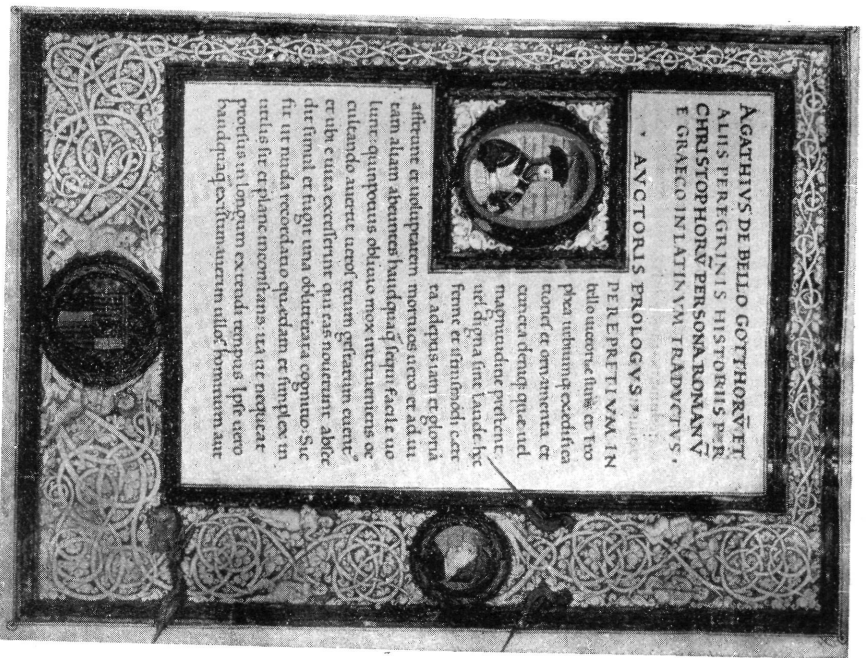 AGATHIVS DE BELLO GOTTHORV̅ ET
ALIIS PEREGRINIS HISTORIIS PER
CHRISTOPHORV̅ PERSONA ROMANV̅
E GRAECO IN LATINVM TRADVCTVS.
AVCTORIS PROLOGVS
PEREPRETIVM IN
bello uictoriae sunt et tro
phea urbiumq; exedifica
tiones et ornamenta et
cuncta deniq; quae uel
magnitudine prestent
uel digna sint laude hęc
ferme et istiusmodi cęte
ra adeptis iam et gloriā
afferunt et uoluptatem mortuos uero et ad ui
tam aliam abeuntes haudquaq̄ sequi facile uo
lunt quinpotius obliuio mox interueniens oc
cultando auertit ueros rerum gestarum euent
et ubi e uita excesserunt qui eas nouerunt absce
dit simul et fugit una obliterata cognitio. Sic
fit ut nuda recordatio quędam et simplex in
utilis sit et plane inconstans ita et nequeat
prorsus in longum extendi tempus. Ipse uero
haudquaq̄ existimauerim ullos hominum aut